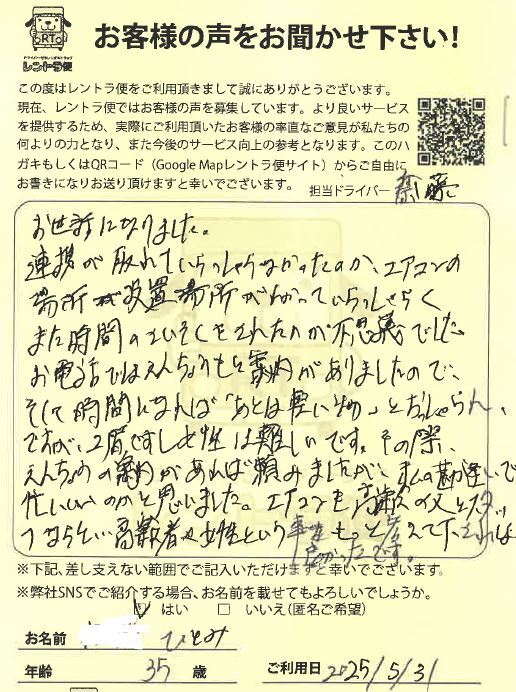 RT
ドライバー付きレンタルトラック
レントラ便
お客様の声をお聞かせ下さい!
この度はレントラ便をご利用頂きまして誠にありがとうございます。
現在、レントラ便ではお客様の声を募集しています。より良いサービス
を提供するため、実際にご利用頂いたお客様の率直なご意見が私たちの
何よりの力となり、また今後のサービス向上の参考となります。このハ
ガキもしくはQRコード(Google Mapレントラ便サイト)からご自由に
お書きになりお送り頂けますと幸いでございます。
担当ドライバー 齋藤
お世話になりました。
連携が取れていらっしゃらなかったのか、エアコンの
場所が設置場所がわかっていらっしゃらく
また時間のさいそくをされたのが不思議でした
お電話ではえんちょうもと案内がありましたので、
そして時間になれば「あとは軽い物」とおっしゃられ、
ですが、2階ですし女性は難しいです。その際、
えんちょうの案内があれば頼みましたが、私の勘違いで
忙しいのかと思いました。エアコンも高齢の父と
高齢者や女性という事もっと考えて下されば
良かったです。
※下記、差し支えない範囲でご記入いただけますと幸いでございます。
※弊社SNSでご紹介する場合、お名前を載せてもよろしいでしょうか。
☑ はい □ いいえ(匿名ご希望)
お名前 ひとみ
年齢 35 歳 ご利用日 2025/5/31